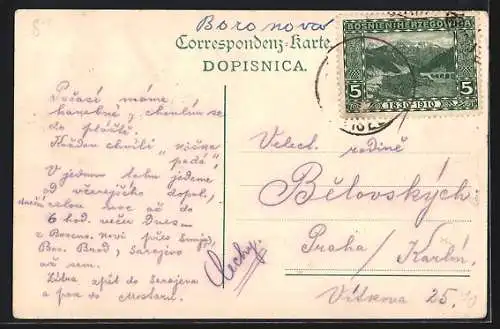 Boronova
Correspondenz-Karte
DOPISNICA.
BOSNIEN-HERZEGOWINA
5 1830-1910 5
Počasí máme
hanebné, choulím se
do pláště.
Každou chvíli "
padá",
V jednom jedeme
od včerejška dopol.
celou noc až do
6 hod. večer Dnes
z Bosens. novi přes
Bos. Brod, Sarajevo
až sem.
Zítra zpět do Serajeva
a pak do Mostaru.
Čechy.
Velect. rodině
Bělovských
Praha / Karlín.
Vítkova 25.